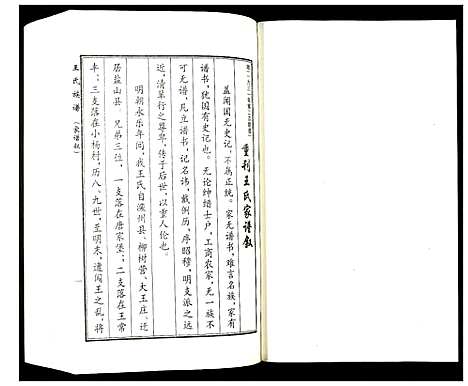 重刊王氏家谱叙
盖闻国无史记，不成正统。家无谱书，难言名族，家有
谱书，犹国有史记也。无论绅缙士户，工商农家，无一族不
可无谱。凡立谱书，记名讳，载例历，序昭穆，明支派之远
近，清辈行之尊卑，传于后世，以重人伦也。
明朝永乐年间，我王氏自滦州县，柳树营、大王庄、迁
居盐山县 兄弟三位，一支落在唐家堡；二支落在王常
丰，三支落在小杨村，历八、九世，至明末，遭闯王之乱，将
王氏族谱
（家谱叙）
一